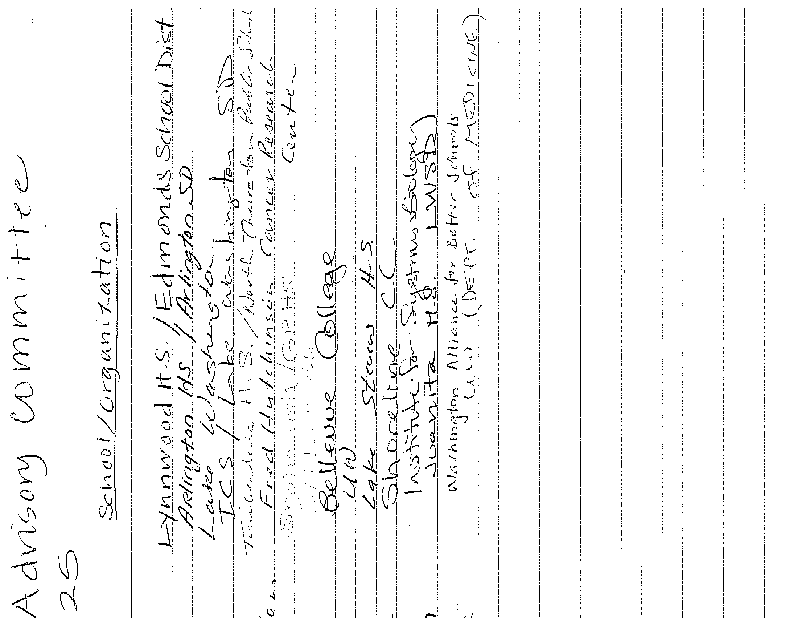 Advisory Committee
25
School/Organization
Lynnwood H.S. / Edmonds School Dist
Arlington HS / Arlington SD
Lake Washington
TCS / Lake Washington SD
H.S. / North Thurston Public School
Fred Hutchinson Cancer Research
Center
Bellevue College
UW
Lake Stevens H.S.
Shoreline CC
Institute for Systems Biology
Juanita HS LWSD
Washington Alliance for Better Schools
UW (DEPT. OF MEDICINE)